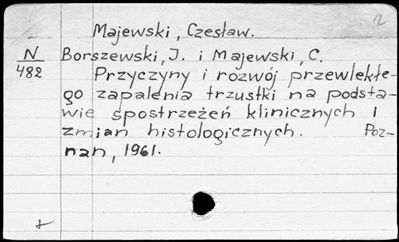 2
Majewski, Czesław.
N Borszewski, J. i Majewski, C.
482 Przyczyny i rozwój przewlekłe-
go zapalenia trzustki na podsta-
wie spostrzeżeń klinicznych i
zmian histologicznych. Poz-
nan, 1961.